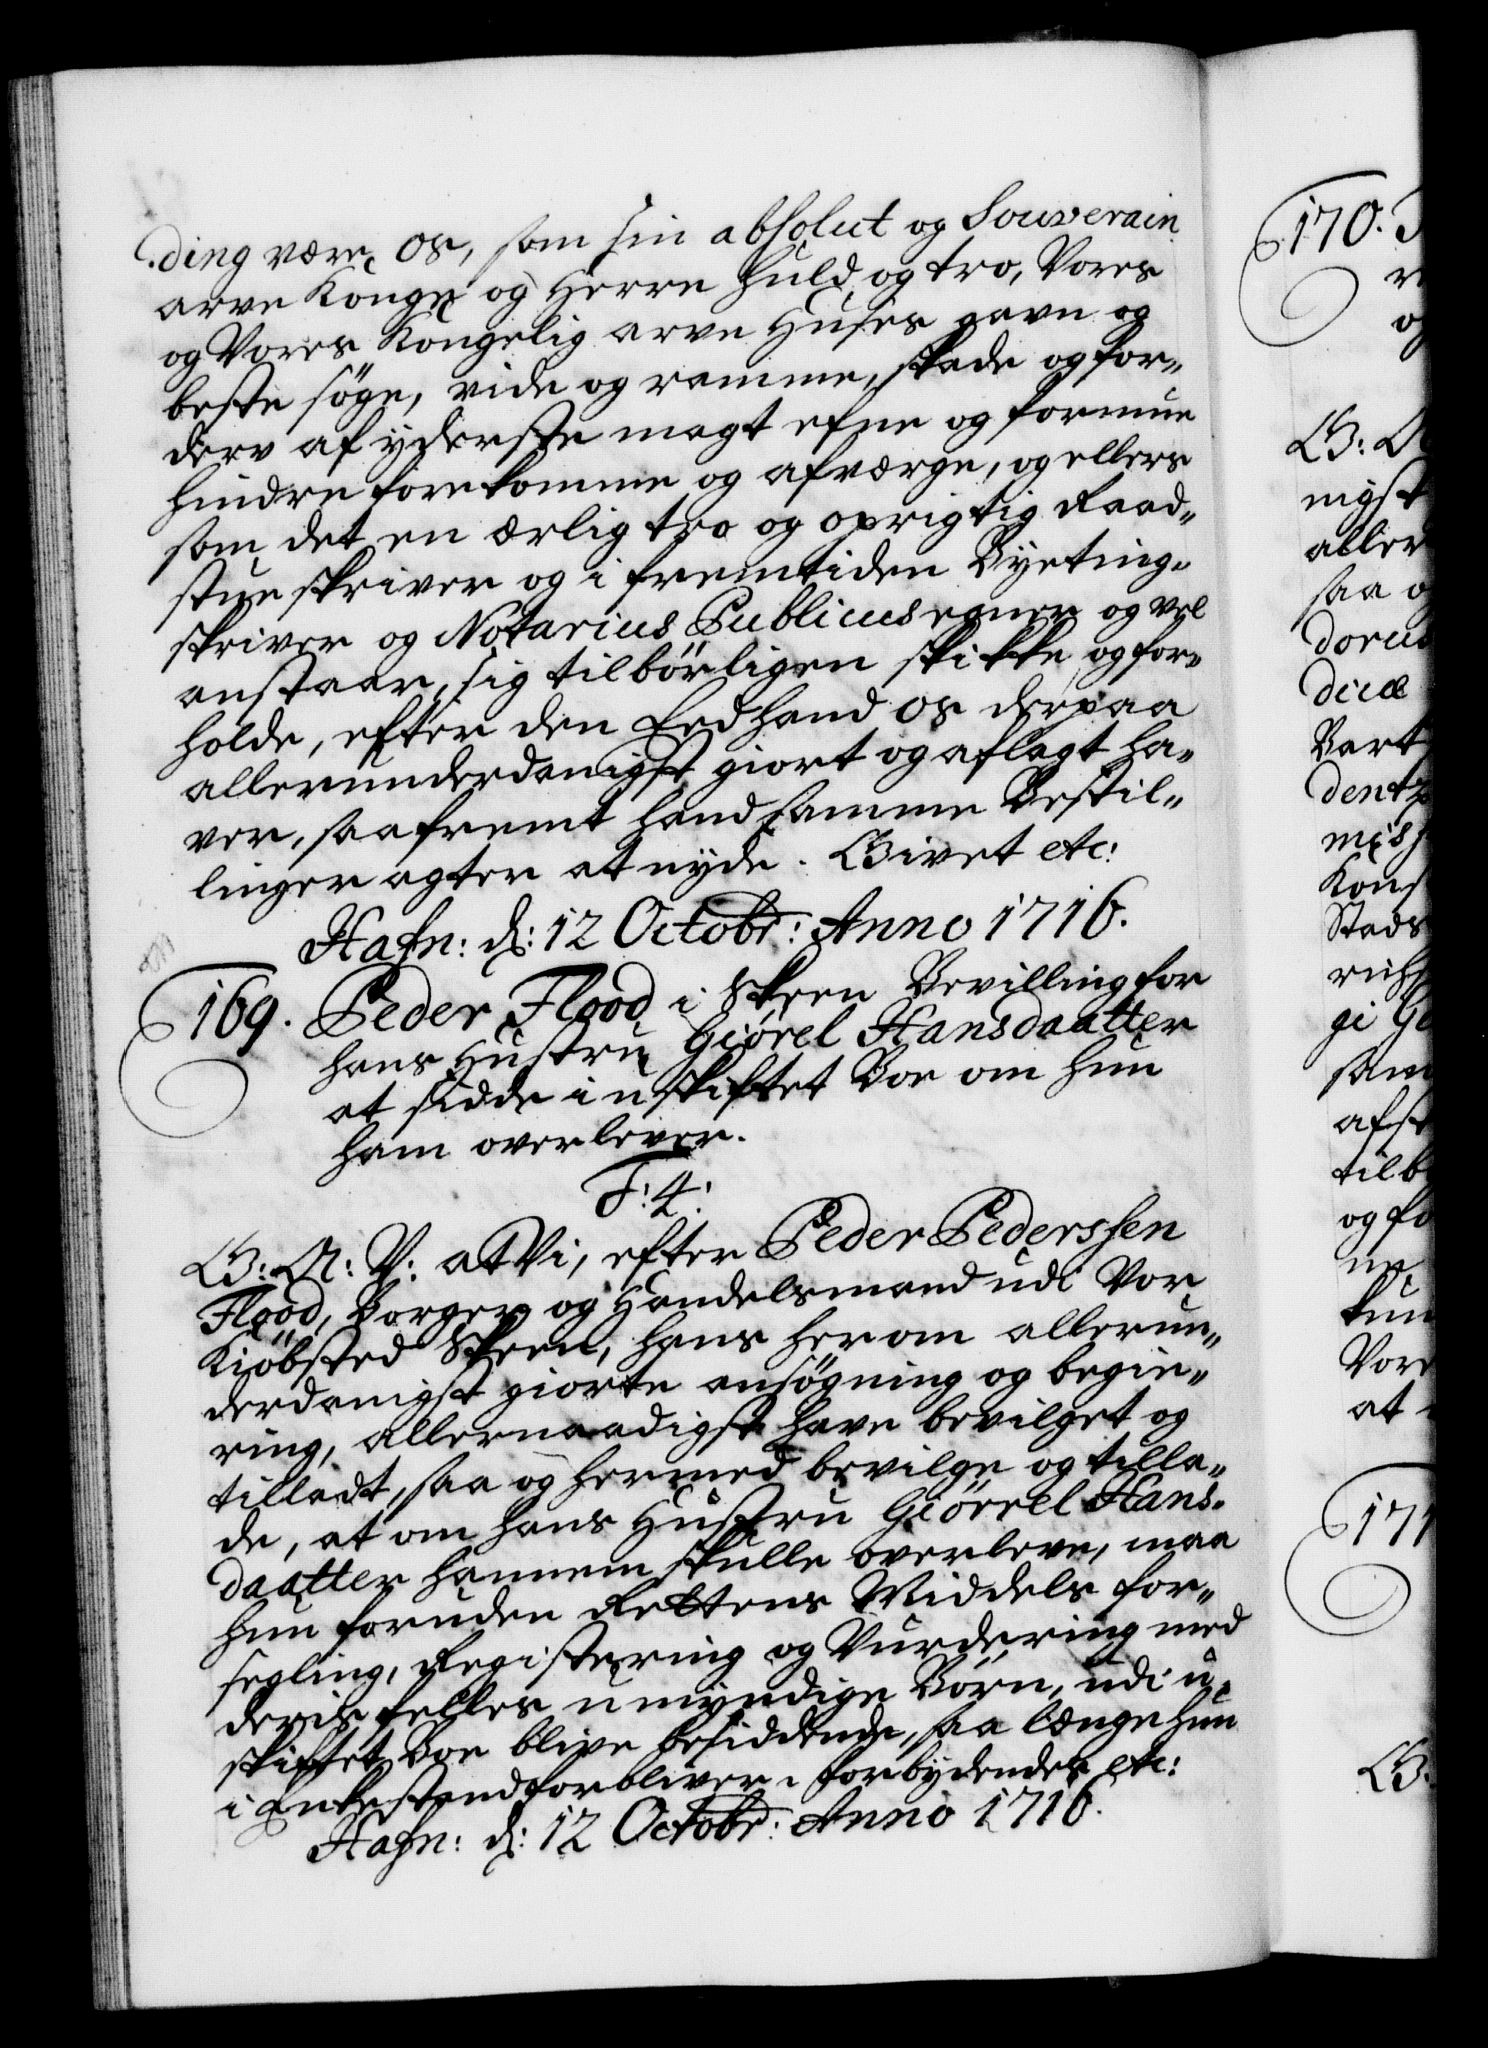 ding være os, som sin absolut og Souverain
arve Konge og Herre huld og tro, Vores
og Vores Kongelig arve Huses gavn og
beste søge, vide og ramme, skade og for„
derv af yderste magt efne og formue
hindre forekomme og afværge, og ellers
som det en ærlig tro og oprigtig Raad„
stue skriver og i fremtiden Byeting„
skriver og Notarius Publicus egner og vel
anstaar, sig tilbørligen skikke og for„
holde, efter den Eed hand os derpaa
allerunderdanigst giort og aflagt ha„
ver, saafremt hand samme Bestil„
linger agter at nyde. Givet etc:
Hafn: d: 12 Octobr: Anno 1716.
169. Peder Flood i Skeen Bevilling for
hans Hustru Giørel Hansdaatter
at sidde i uskiftet Boe om hun
ham overlever.
F: 4:
G: A: V: at Vi, efter Peder Pederssen
Flood, Borger og Handelsmand udi Vor
Kiøbsted Skeen, hans herom allerun„
derdanigst giorte ansøgning og begie„
ring, allernaadigst have bevilget og
tilladt, saa og hermed bevilge og tilla„
de, at om hans Hustru Giørrel Hans„
daatter hannem skulle overleve, maa
hun foruden Rettens Middels for„
segling, Registering og Vurdering med
deris felles umyndige Børn, udi u„
skiftet Boe blive besiddende, saa længe hun
i Enkestand forbliver. Forbydendes etc:
Hafn: d: 12 Octobr: Anno 1716.
170.
og
G: A
nigst
aller
saa o
dorus
diæ
Bart
dentz
Kons
Stads
gi Ge
sam
afst
tilb
og fo
kun
Vore
at
171
G: